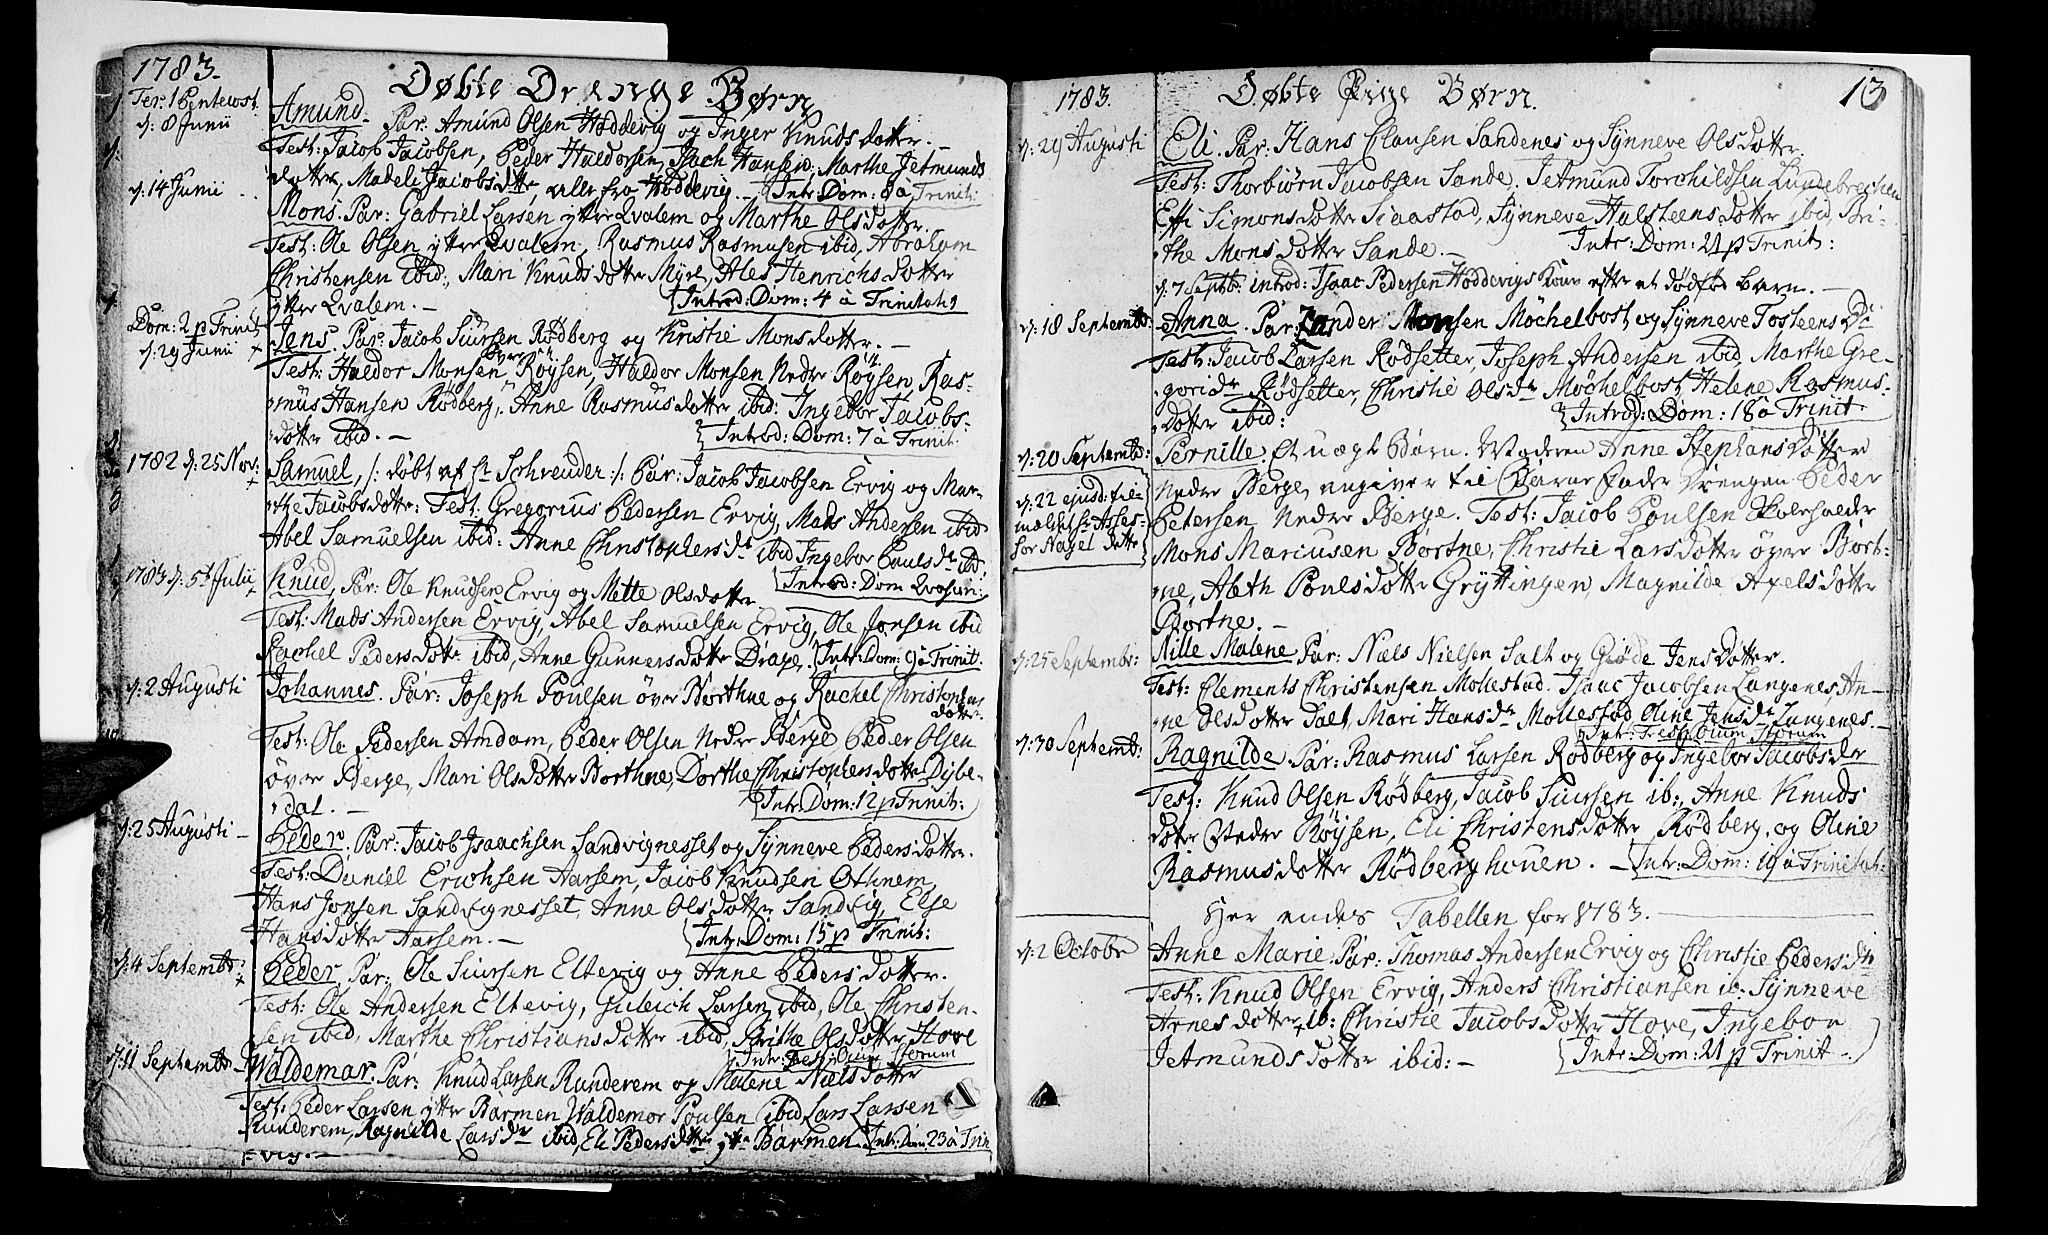 1783.
Døbte Drenge Børn
Fer: 1 Pentecost.
d: 8 Junii
Amund. Par: Amund Olsen Hoddevig og Inger Knuds dotter.
Test: Jacob Jacobsen, Peder Haldorsen, Isach Hansen, Marthe Jetmunds
dotter, Madeli Jacobsdtter, alle fra Hoddevig. Intr: Dom: 8 à Trinit:
d: 14 Junii
Mons. Par: Gabriel Larsen ytter Qvalem og Marthe Olsdotter.
Test: Ole Olsen ytter Qvalem, Rasmus Rasmusen ibid, Abraham
Christensen ibid:, Mari Knuds dotter Myre, Ales Henrichsdotter
ytter Qvalem. — Introd: Dom: 4 à Trinitatis
Dom: 2 p Trinit.
d: 29 Junii
Jens. Par: Jacob Siursen Rødberg og Kristie Monsdotter. —
Test: Haldor Monsen øvre Röÿsen, Haldor Monsen Neder Röÿsen, Ras-
mus Hansen Rødberg, Anne Rasmusdotter ibid: Ingebor Jacobs-
dotter ibid. — Introd: Dom: 7 à Trinit.
1782 d: 25 Nov:
Samuel, /: døbt af Hr Schreuder :/ Par: Jacob Jacobsen Ervig og Mar-
the Jacobsdotter: Test: Gregorius Pedersen Ervig, Mads Andersen ibid
Abel Samuelsen ibid: Anne Christophersdr ibid Ingebor Paulsdr ibd:
Introd: Dom Qvasim:
1783 d: 5t Julii
Knud, Par: Ole Knudsen Ervig og Mette Olsdotter
Test: Mads Andersen Ervig, Abel Samuelsen Ervig, Ole Jonsen ibid
Rachel Pedersdotter ibid, Anne Gunnersdotter Drage. Intr: Dom: 9 à Trinit.
d: 2 Augusti
Johannes. Par: Joseph Poulsen över Borthne og Rachel Christophers
dotter.
Test: Ole Pedersen Amdam, Peder Olsen Neder Berge Peder Olsen
över Berge, Mari Olsdotter Borthne, Dorthe Christophersdotter Dÿbe-
dal. — Intr: Dom: 12 p Trinit:
d: 25 Augusti —
Peder. Par: Jacob Isaachsen Sandvignesset og Sÿnneve Pedersdotter.
Test: Daniel Erichsen Aarsem, Jacob Knudsen Otknem,
Hans Jonsen Sandvignesset, Anne Olsdotter Sandvig, Else
Hansdotter Aarsem. — Intr: Dom: 15 p Trinit:
d: 4 Septembr:
Peder. Par: Ole Siursen Eltevig og Anne Pedersdotter.
Test: Ole Andersen Eltevig, Guleich Larsen ibid, Ole Christen-
sen ibid, Marthe Christiansdotter ibid, Brithe Olsdotter Hove
Intr: Festo Omn: Storum
d: 11 Septembr:
Waldemar. Par: Knud Larsen Runderem og Malene Nielsdotter
Test: Peder Larsen ytter Barmen Waldemor Poulsen ibid Lars Larsen
Runderem, Ragnilde Larsdr ibid, Eli Pedersdotter ytter Barmen Intr: Dom 23 à Trin
vig. —
1783.
Døbte Pige Børn.
13
d: 29 Augusti
Eli. Par: Hans Clausen Sandenes og Sÿnneve Olsdotter.
Test: Thorbiørn Jacobsen Sande, Jetmund Torchildsen Lundebrechen
Effi Simonsdotter Siaastad, Sÿnneve Halsteensdotter ibid, Bri-
the Monsdotter Sande. — Intr: Dom: 21 p Trinit:
d. 7 Septb: introd: Isaac Pedersen Hoddevigs Kone efter et dødfød barn. —
d: 18 Septembr:
Anna. Par: Zander Monsen Möchelbost og Sÿnneve Tosteens Dr
Test: Jacob Larsen Rødsetter, Joseph Andersen ibid, Marthe Gre-
goridr Rødsetter, Christie Olsdr Möchelbost Helene Rasmus-
dotter ibid: Introd: Dom: 18 à Trinit.
d: 20 Septembr:
Pernille, et uægt Børn. Moderen Anne Stephans dotter
Nedre Berge, angiver til Barne Fader Drengen Peder
Petersen Nedre Berge. Test: Jacob Poulsen Skoleholder
d: 22 ejusd:
Mons Mariusen Bortne, Christie Larsdotter över Bort-
ne, Abeth Povelsdotter Grÿttingen, Magnilde Axelsdotter
Bortne. —
d: 25 Septembr:
Nille Malene. Par: Næls Nielsen Salt og Grøde Jensdotter.
Test: Clements Christensen Mollestad. Isaac Jacobsen Langenes, An-
ne Olsdotter Salt, Mari Hansdr Mollestad, Oline Jensdr Langenes. —
Intr: Festo Omn: Storum
d: 30 Septembr:
Ragnilde Par: Rasmus Larsen Rødberg og Ingebor Jacobsdr
Test: Knud Olsen Rødberg, Jacob Siursen ib:, Anne Knuds
doter Neder Röÿsen, Eli Christensdotter Rødberg, og Oline
Rasmusdotter Rødberghouen. — Intr: Dom: 19 à Trinitat:
Her endes Tabellen for 1783.
d: 2 Octobr
Anne Marie. Par: Thomas Andersen Ervig og Christie Pedersdtr
Test: Knud Olsen Ervig, Anders Christiansen ib: Sÿnneve
Arnesdotter ib: Christie Jacobsdotter Hove, Ingebor
Jetmundsdotter ibid: — Intr: Dom: 21 p Trinit.